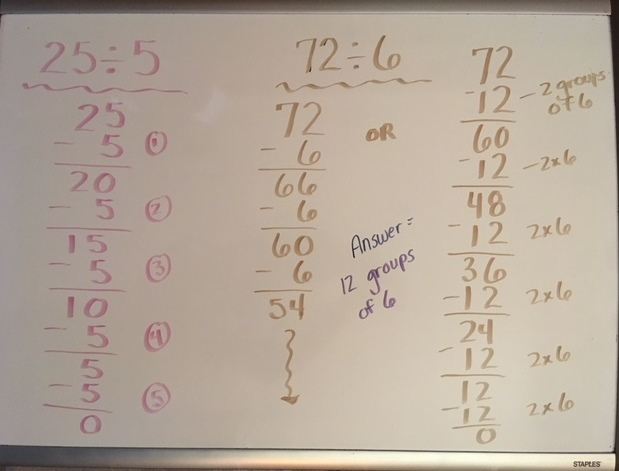 25÷5
25
- 5 ①
20
- 5 ②
15
- 5 ③
10
- 5 ④
5
- 5 ⑤
0
72÷6
72
- 6
66
- 6
60
- 6
54
OR
Answer =
12 groups
of 6
72
-12 - 2 groups
of 6
60
-12 - 2x6
48
-12 2x6
36
-12 2x6
24
-12 2x6
12
-12 2x6
0
STAPLES